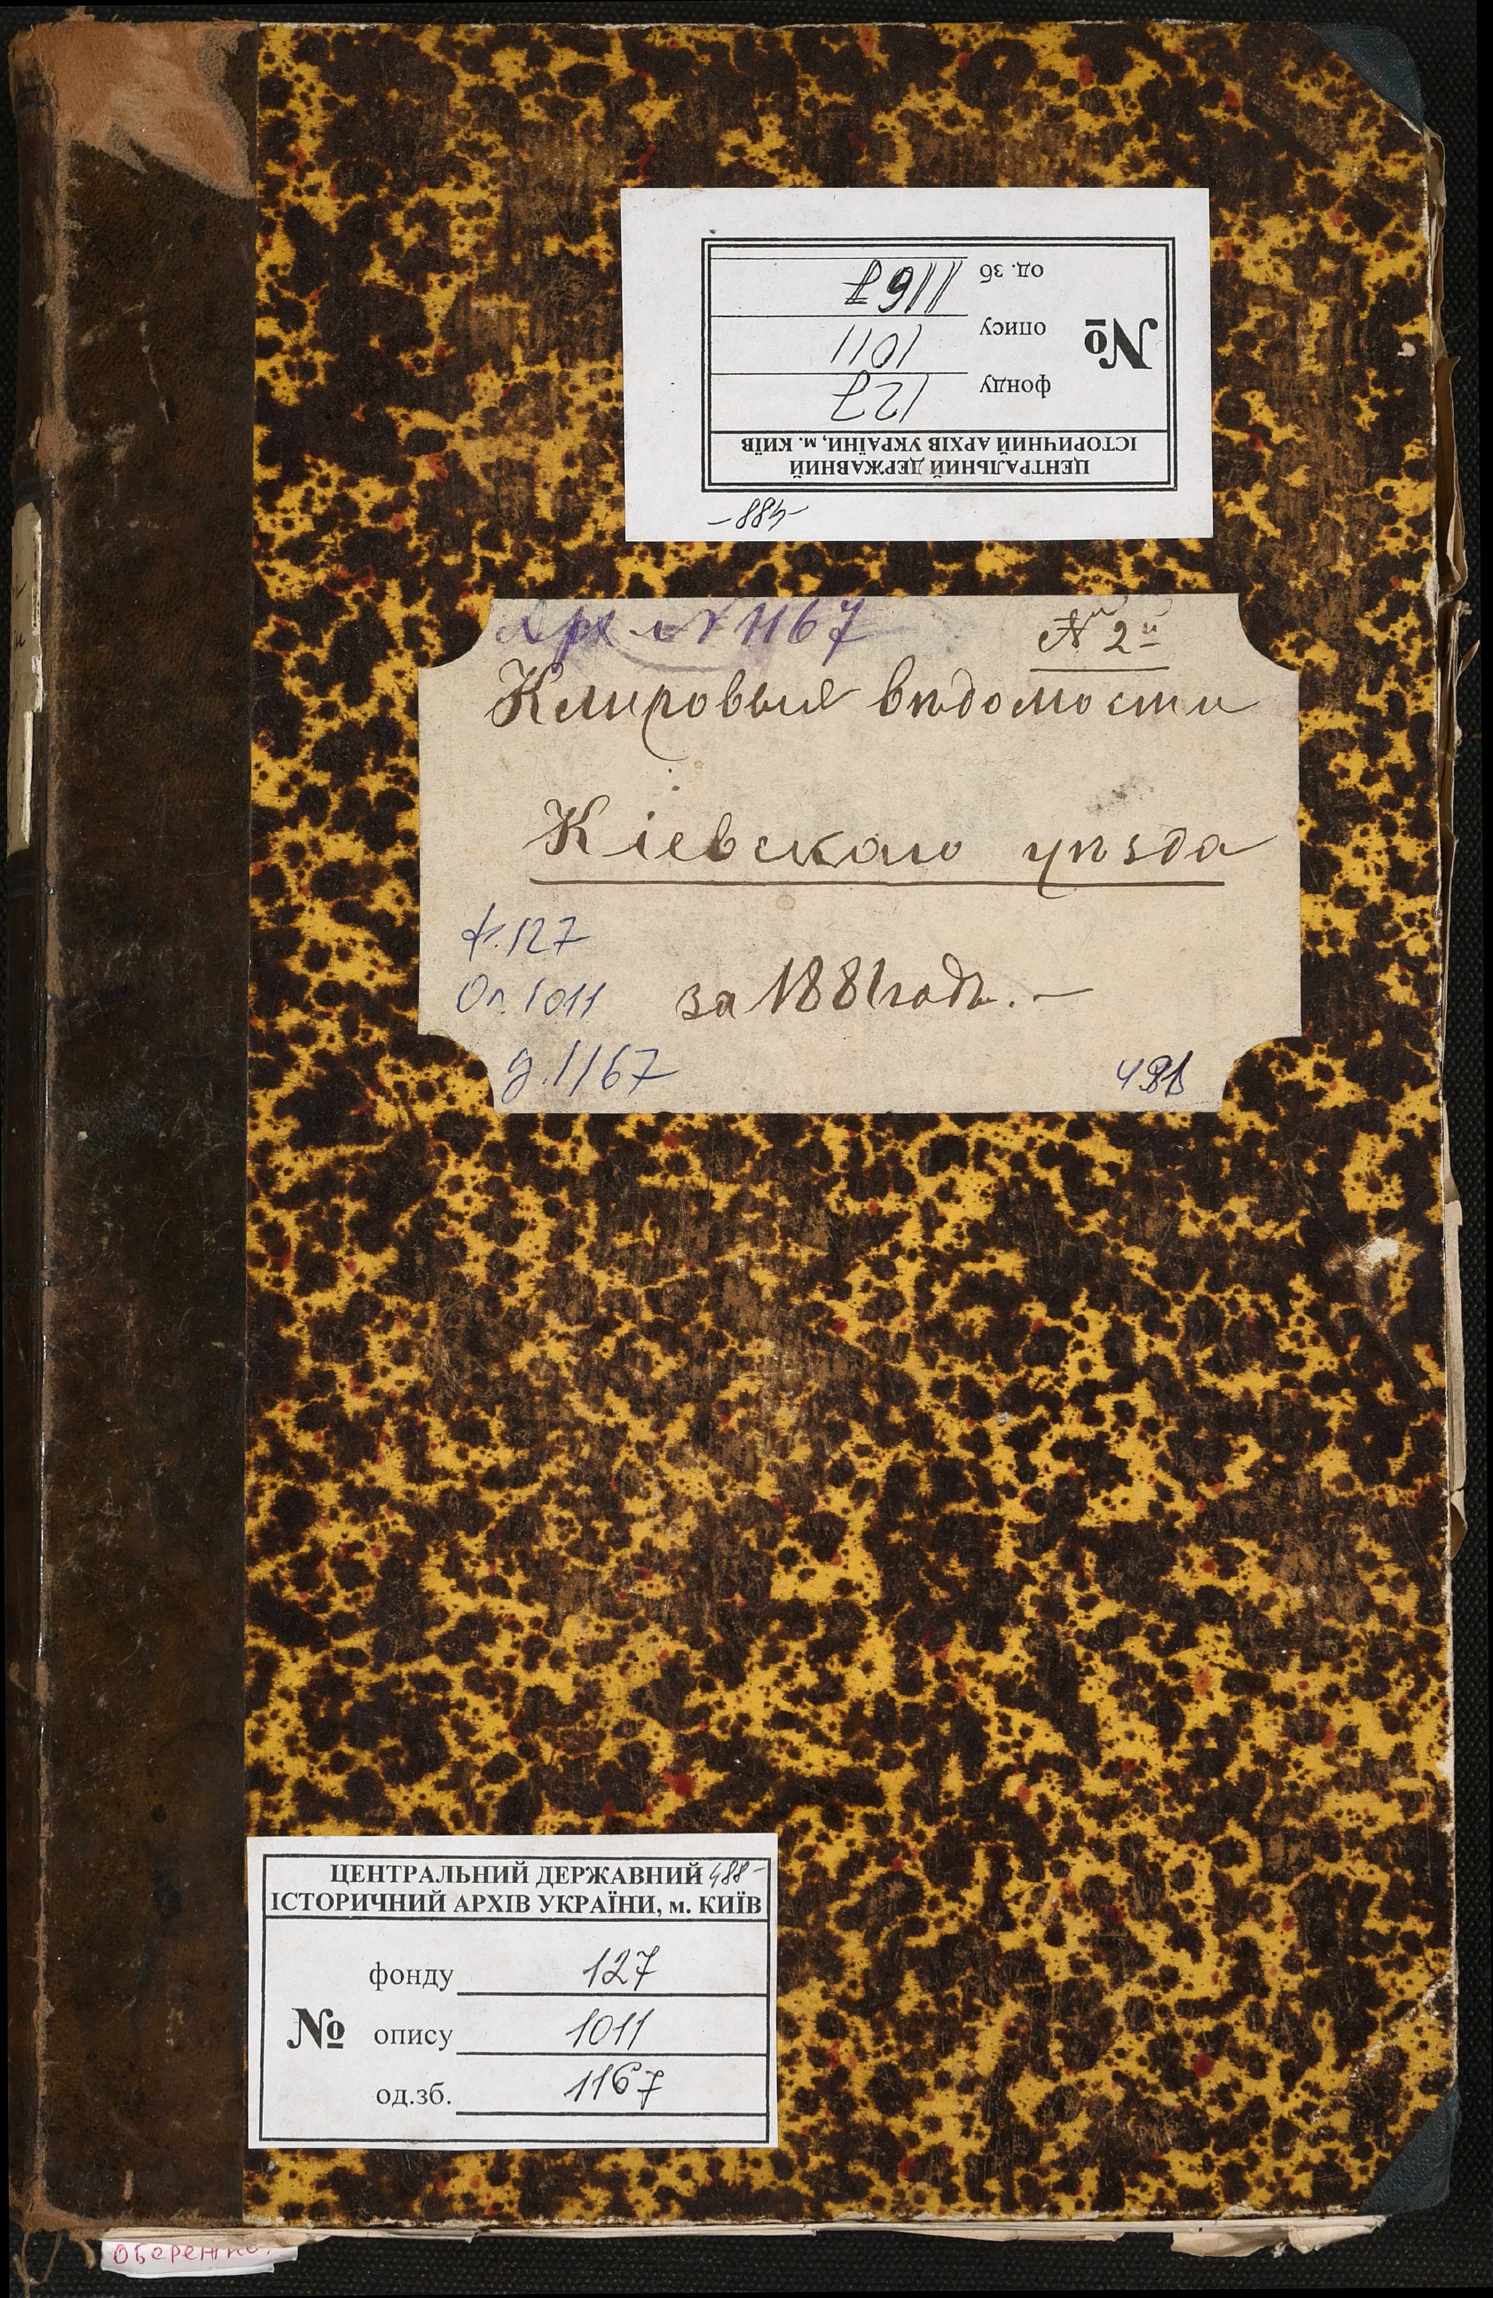 ЦЕНТРАЛЬНИЙ ДЕРЖАВНИЙ
ІСТОРИЧНИЙ АРХІВ УКРАЇНИ, м. КИЇВ
№
фонду 127
опису 1011
од. зб 1167
Арх № 1167
№ 2й
Клировыя вѣдомости
Кіевскаго уѣзда
ф. 127
Оп. 1011
за 1881 годъ. —
д. 1167
ЦЕНТРАЛЬНИЙ ДЕРЖАВНИЙ 488-
ІСТОРИЧНИЙ АРХІВ УКРАЇНИ, м. КИЇВ
№
фонду 127
опису 1011
од.зб. 1167